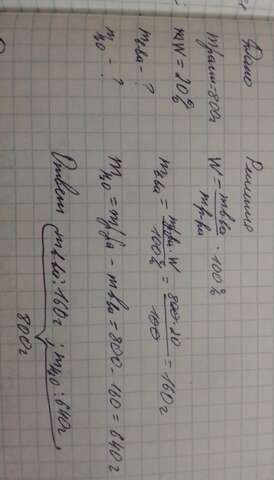 Дано
mраст=800г
mW = 20%
mв-ва - ?
mH2O - ?
Решение
W = mв-ва / mр-ва · 100%
mв-ва = mр-ра · W / 100% = 800·20 / 100 = 160г
mH2O = mр-ра - mв-ва = 800 - 160 = 640г
Ответ mв-ва: 160г ; mH2O : 640г
800г